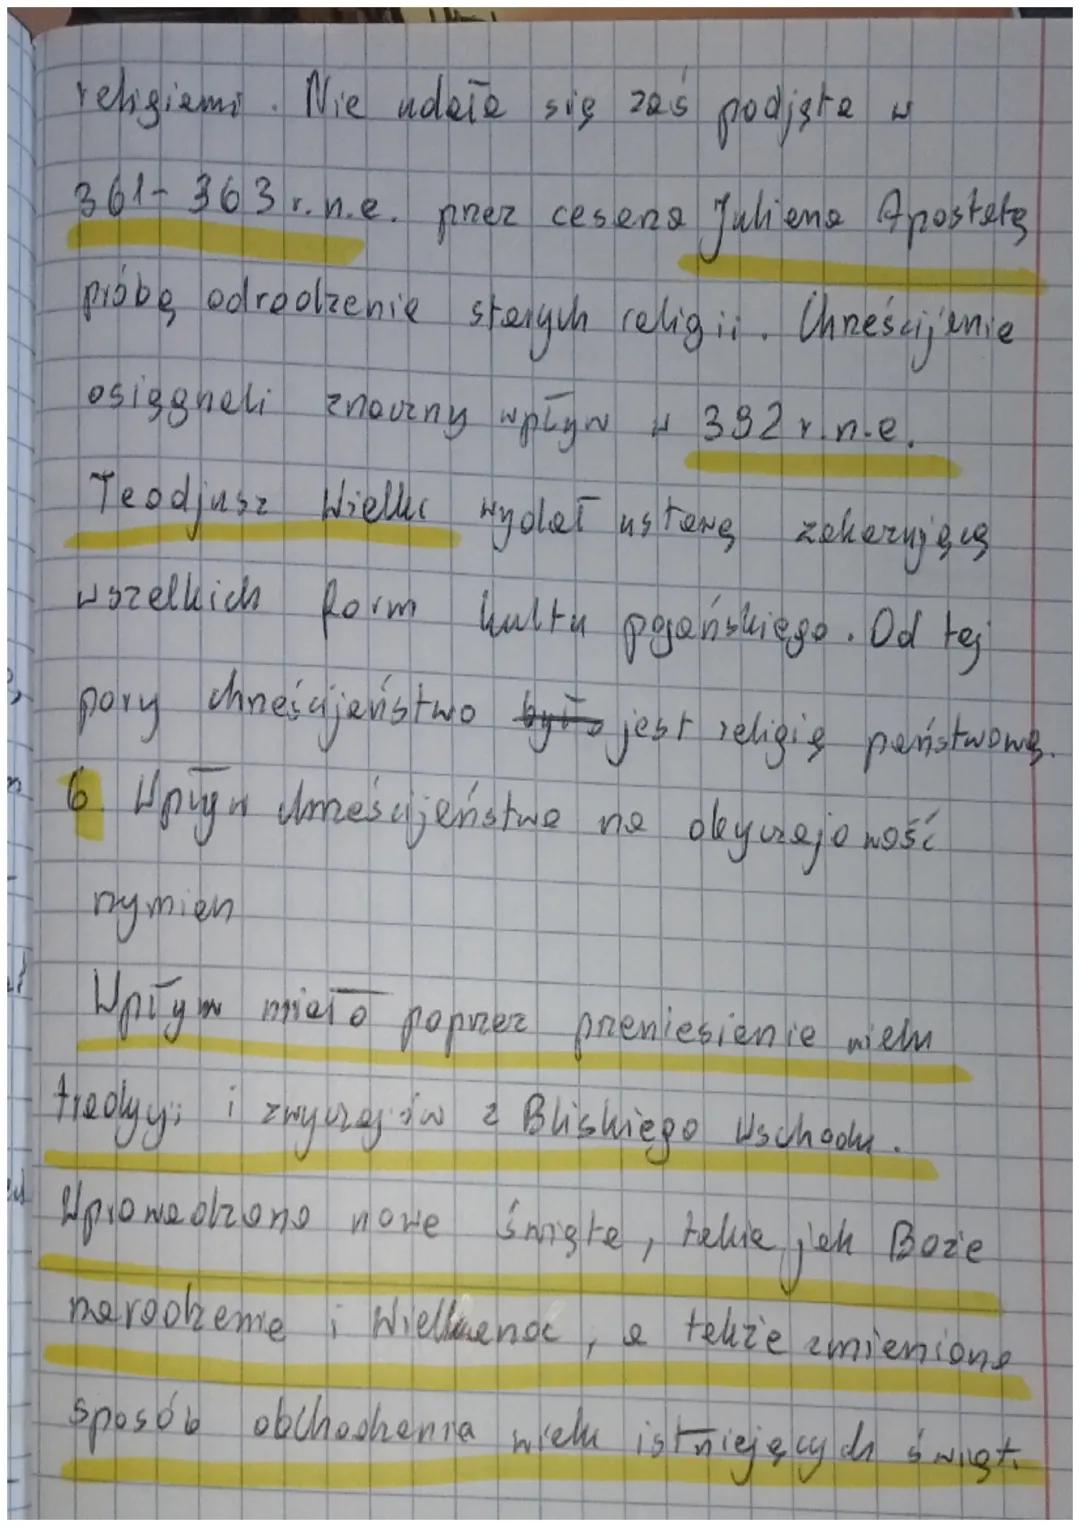 religiami. Nie udała się zaś podjęta w
361-363 r.n.e. przez cesarza Juliana Apostatę
próbę odrodzenie starych religii. Chrześcijanie
osiągneli znaczny wpływ w 392 r.n.e.
Teodjusz Wielki wydał ustawę zakazującą
wszelkich form kultu pogańskiego. Od tej
pory chrześcijaństwo było jest religią państwową.
6. Wpływ chrześcijaństwa na obyczajowość
rzymian
Wpływ miało poprzez przeniesienie wielu
tradycji i zwyczajów z Bliskiego Wschodu.
Wprowadzono nowe święta, takie jak Boże
narodzenie i Wielkanoc, a także zmieniono
sposób obchodzenia wielu istniejących świąt.